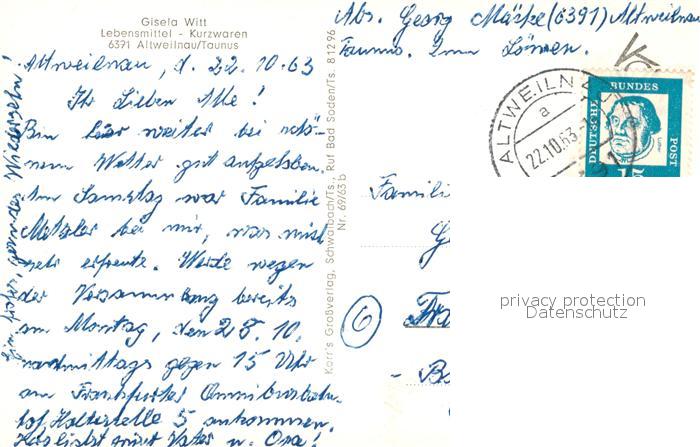 Gisela Witt
Lebensmittel - Kurzwaren
6391 Altweilnau/Taunus
Altweilnau, d. 22.10.63
Ihr Lieben Alle!
Bin hier weiter bei schö-
nem Wetter gut aufgehoben.
Am Samstag war Familie
Metzler bei mir, was mich
sehr erfreute. Werde wegen
der Versammlung bereits
am Montag, den 28.10.
nachmittags gegen 15 Uhr
am Frankfurter Omnibusbahn-
hof, Haltestelle 5 ankommen.
Herzlichst grüsst Vater u. Opa!
Wiedersehn!
Karr's Großverlag, Schwalbach/Ts., Ruf Bad Soden/Ts. 81296
Nr. 69/63 b
Abs. Georg Mäske (6391) Altweilnau
Taunus. Zum Löwen.
ALTWEILNAU
a
22.10.63
DEUTSCHE
BUNDES
POST
Luther
15
Famili
G
6
Fra
- B
privacy protection
Datenschutz